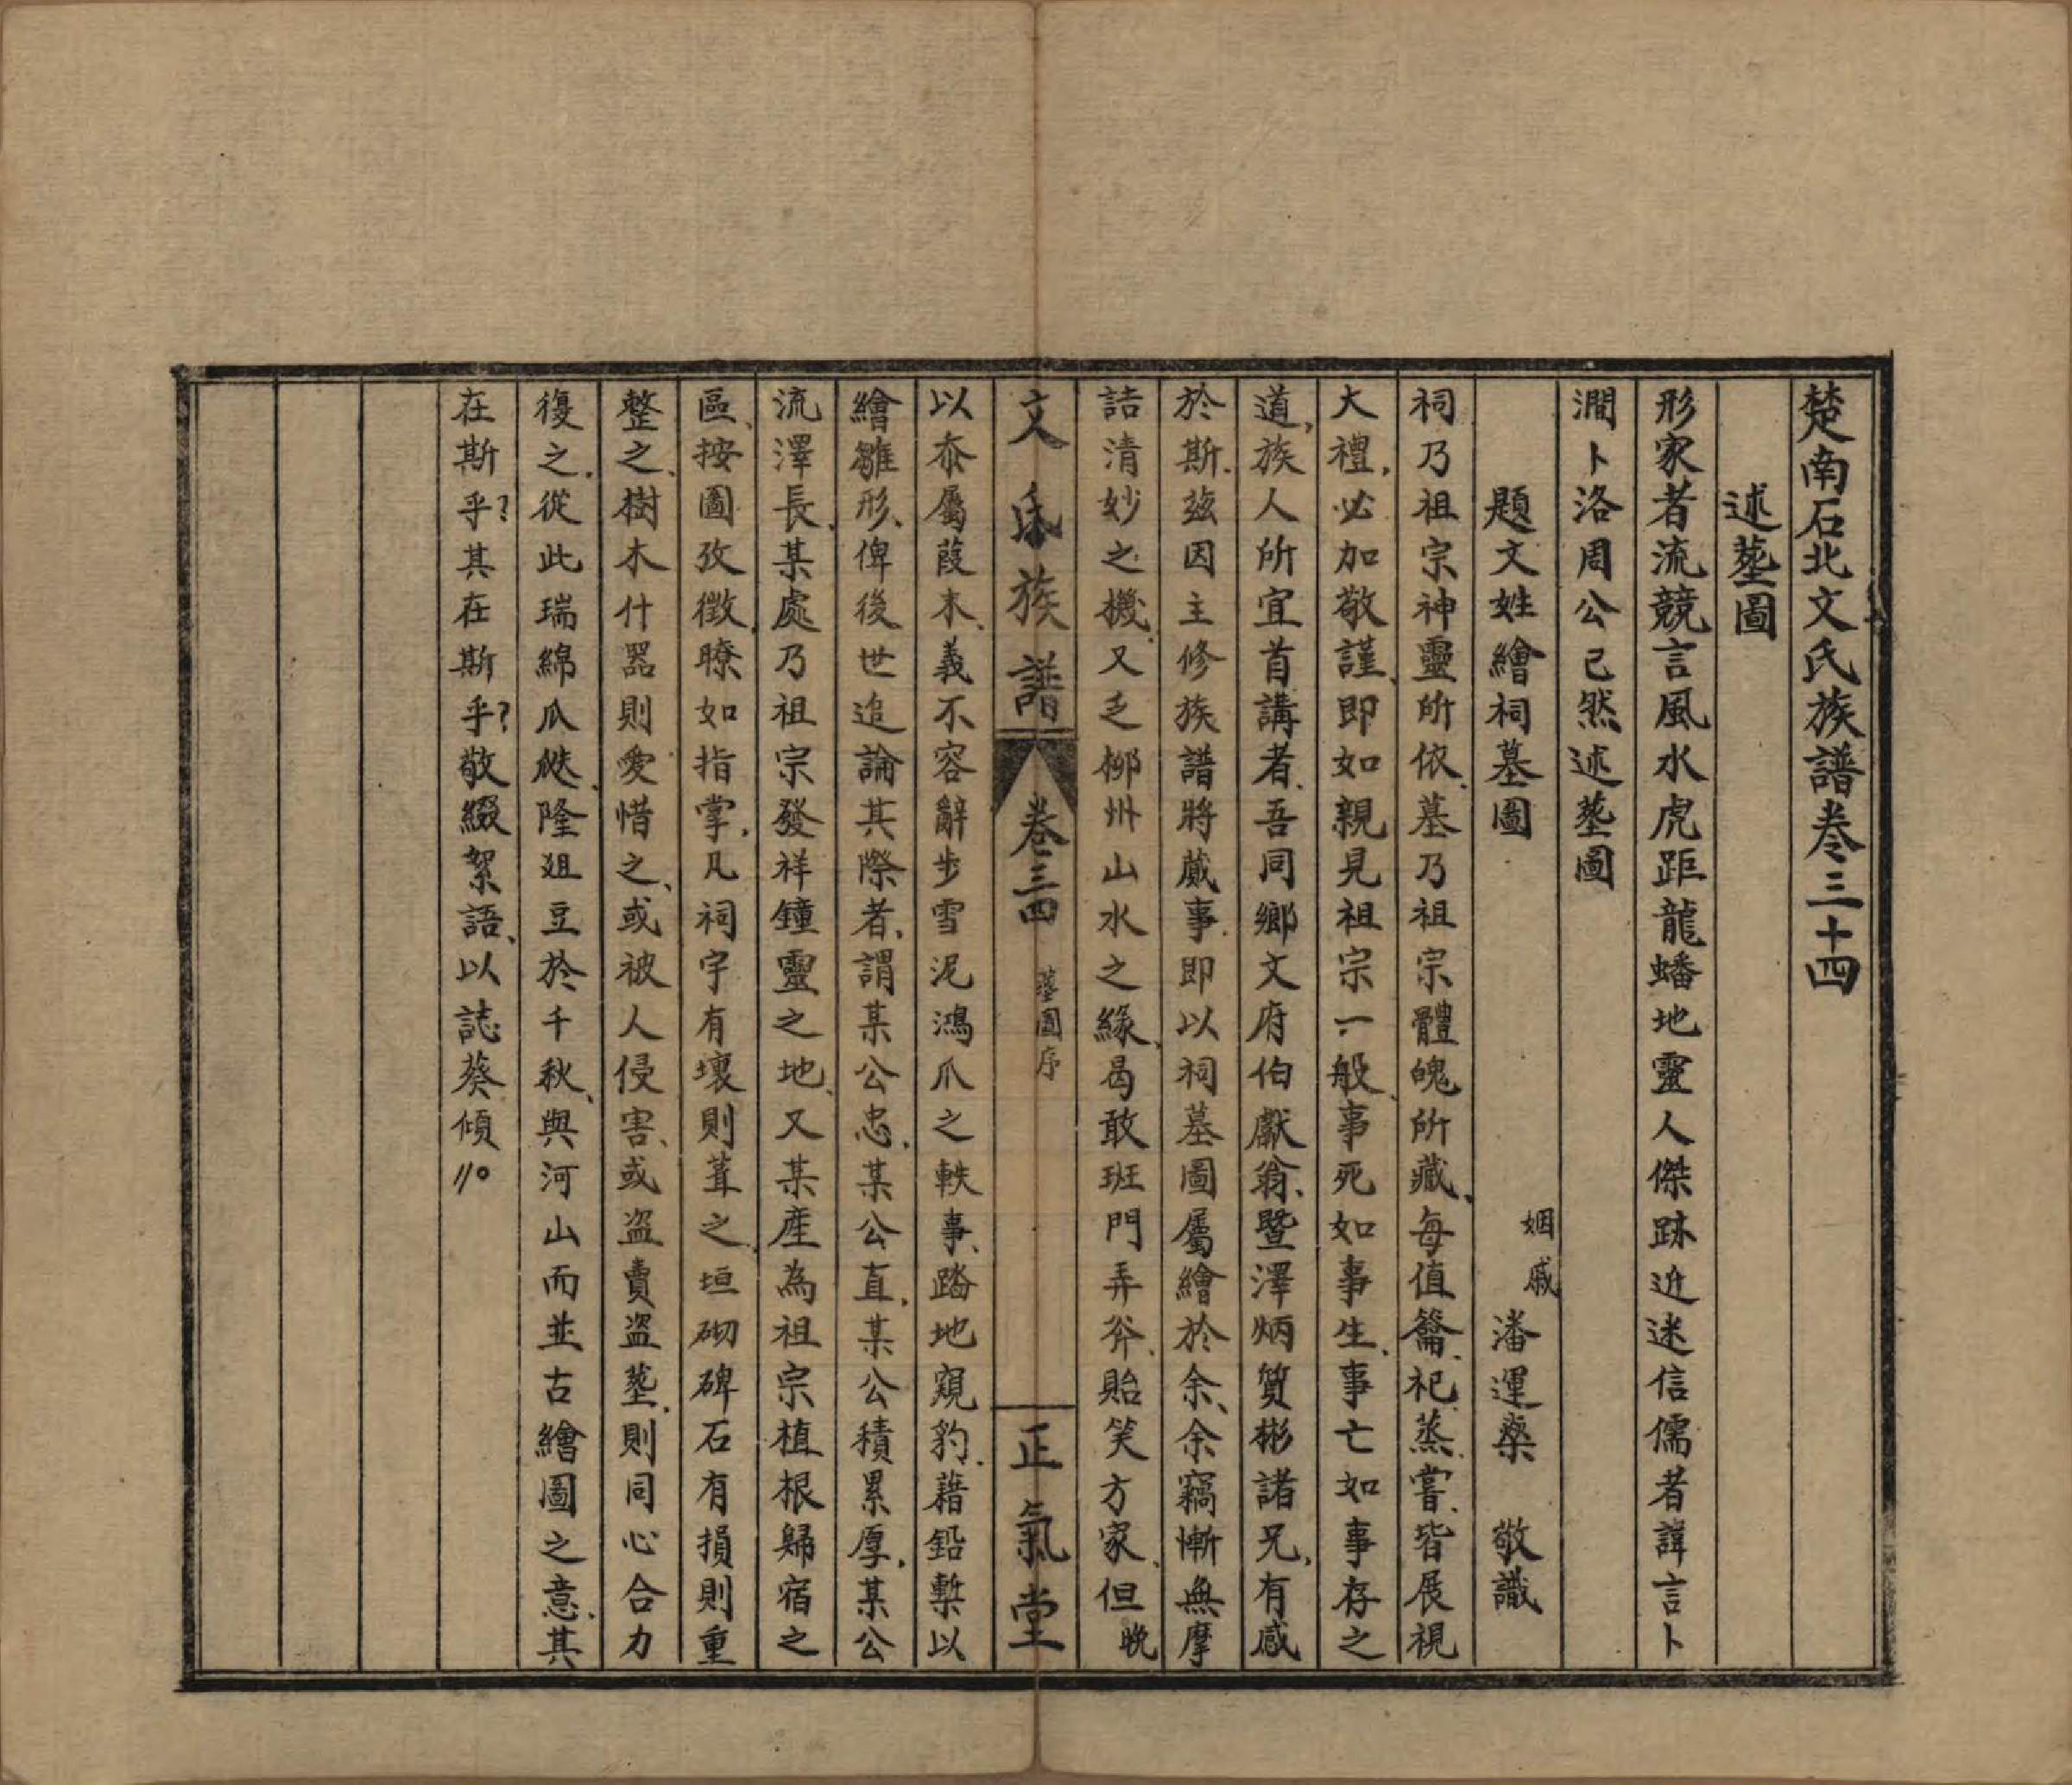 楚南石北文氏族譜卷三十四
述塋圖
形家者流競言風水虎距龍蟠地靈人傑跡近迷信儒者諱言卜
澗卜洛周公已然述塋圖
題文姓繪祠墓圖
姻戚 潘運燊 敬識
祠乃祖宗神靈所依、墓乃祖宗體魄所藏、每值龠、祀、蒸、嘗、皆展視
大禮、必加敬謹、即如親見祖宗一般、事死如事生、事亡如事存之
道、族人所宜首講者、吾同鄉文府伯獻翁、暨澤炳質彬諸兄、有感
於斯、茲因主修族譜將蕆事、即以祠墓圖屬繪於余、余竊慚無摩
詰清妙之機、又乏柳州山水之緣、曷敢班門弄斧、貽笑方家、但晚
文氏族譜
卷三四
塋圖序
正氣堂
以忝屬葭末、義不容辭步雪泥鴻爪之軼事、踏地窺豹、藉鉛槧以
繪雛形、俾後世追論其際者、謂某公忠、某公直、某公積累厚、某公
流澤長、某處乃祖宗發祥鐘靈之地、又某産為祖宗植根歸宿之
區、按圖攷徵、瞭如指掌、凡祠宇有壞則葺之、垣砌碑石有損則重
整之、樹木什器則愛惜之、或被人侵害、或盜賣盜塋、則同心合力
復之、從此瑞綿瓜瓞、隆俎豆於千秋、與河山而並古繪圖之意、其
在斯乎?其在斯乎?敬綴絮語、以誌葵傾〃。